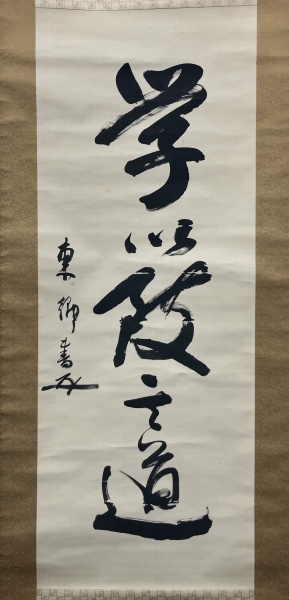 学以致其道
東郷書